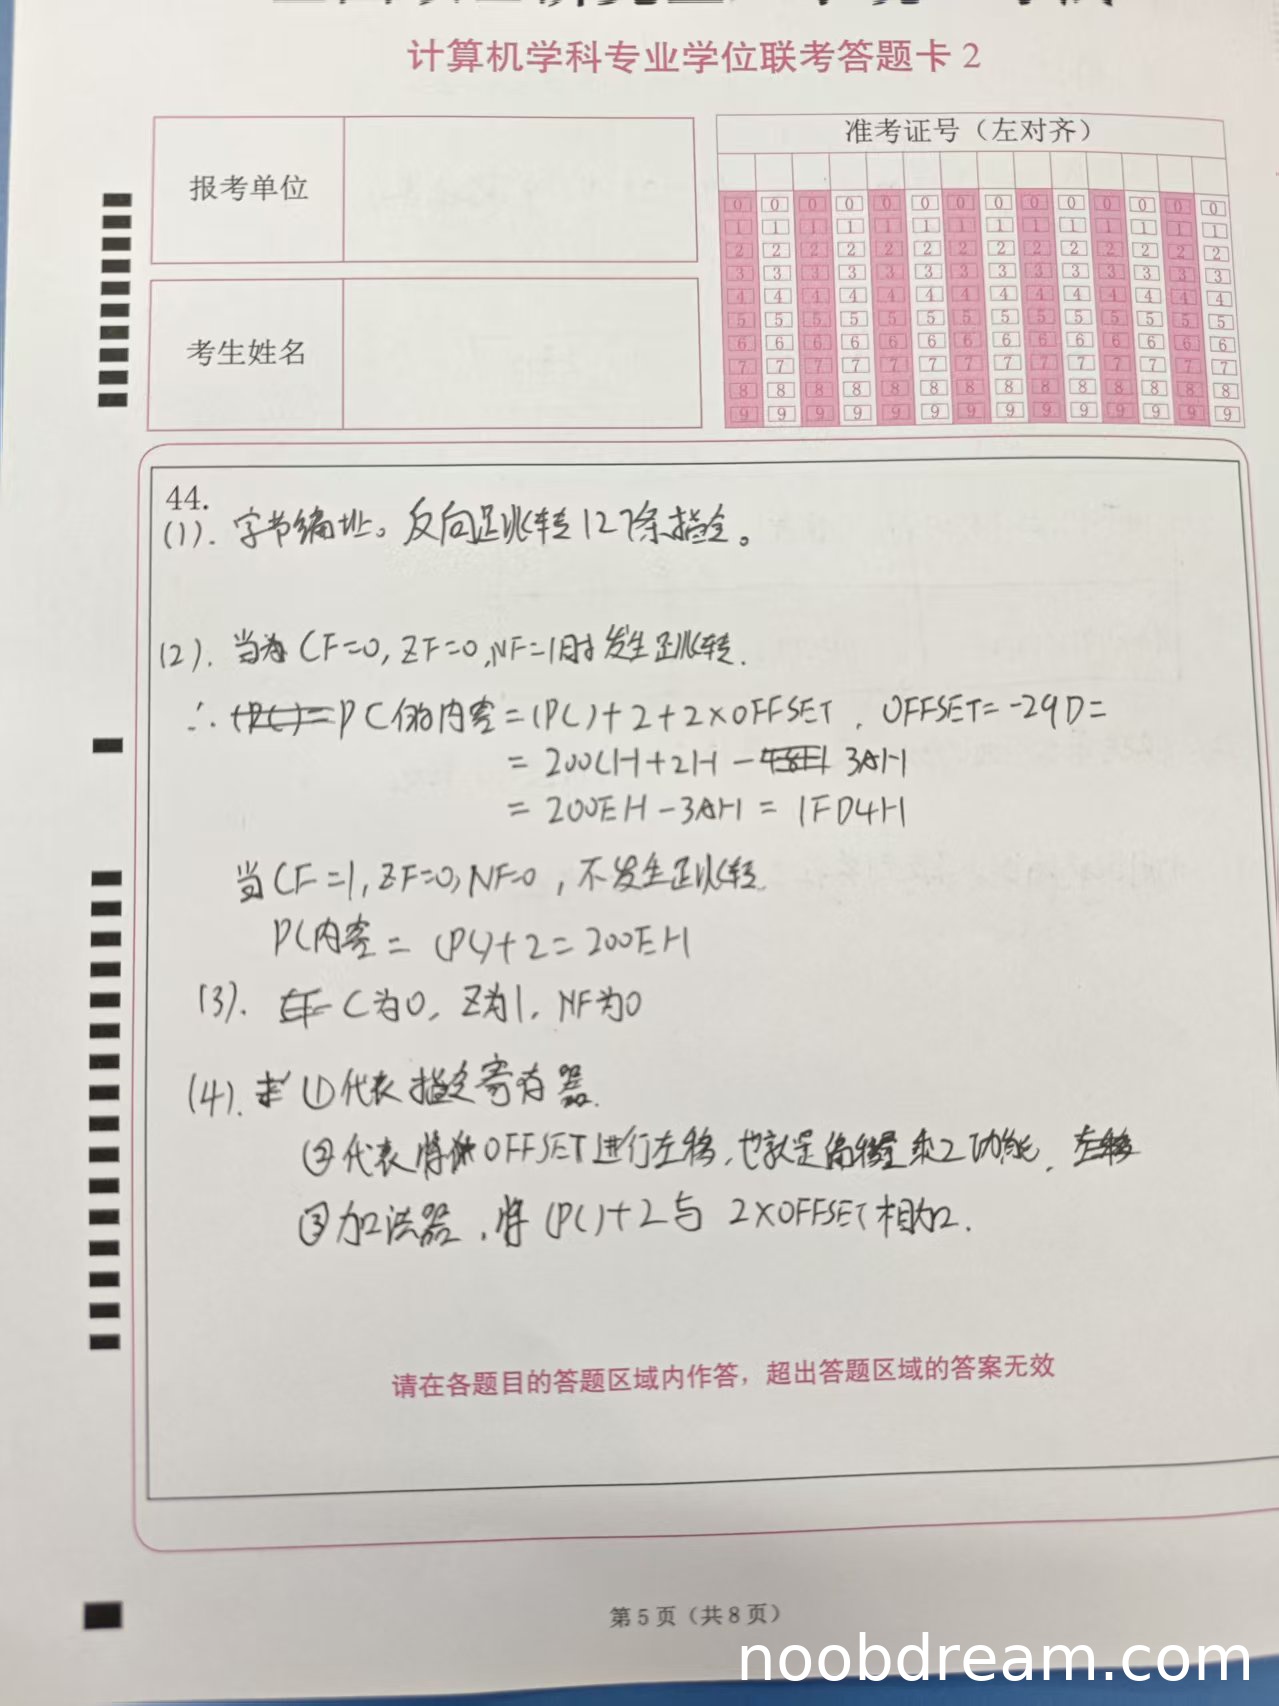 计算机学科专业学位联考答题卡 2
报考单位
考生姓名
准考证号（左对齐）
0 0 0 0 0 0 0 0 0 0 0 0 0 0
1 1 1 1 1 1 1 1 1 1 1 1 1 1
2 2 2 2 2 2 2 2 2 2 2 2 2 2
3 3 3 3 3 3 3 3 3 3 3 3 3 3
4 4 4 4 4 4 4 4 4 4 4 4 4 4
5 5 5 5 5 5 5 5 5 5 5 5 5 5
6 6 6 6 6 6 6 6 6 6 6 6 6 6
7 7 7 7 7 7 7 7 7 7 7 7 7 7
8 8 8 8 8 8 8 8 8 8 8 8 8 8
9 9 9 9 9 9 9 9 9 9 9 9 9 9
44.
(1). 字节编址。反向跳转127条指令。
(2). 当为 CF=0, ZF=0, NF=1时发生跳转.
∴ PC的内容=(PC)+2+2×OFFSET. OFFSET=-29D=
= 200CH+2H-3AH
= 200EH-3AH = 1FD4H
当CF=1, ZF=0, NF=0, 不发生跳转.
PC内容= (PC)+2=200EH
(3). C为0, Z为1, NF为0
(4). ①代表指令寄存器.
②代表将OFFSET进行左移,也就是偏移量乘2功能.
③加法器,将(PC)+2与 2×OFFSET相加.
请在各题目的答题区域内作答，超出答题区域的答案无效
第5页（共8页）
noobdream.com